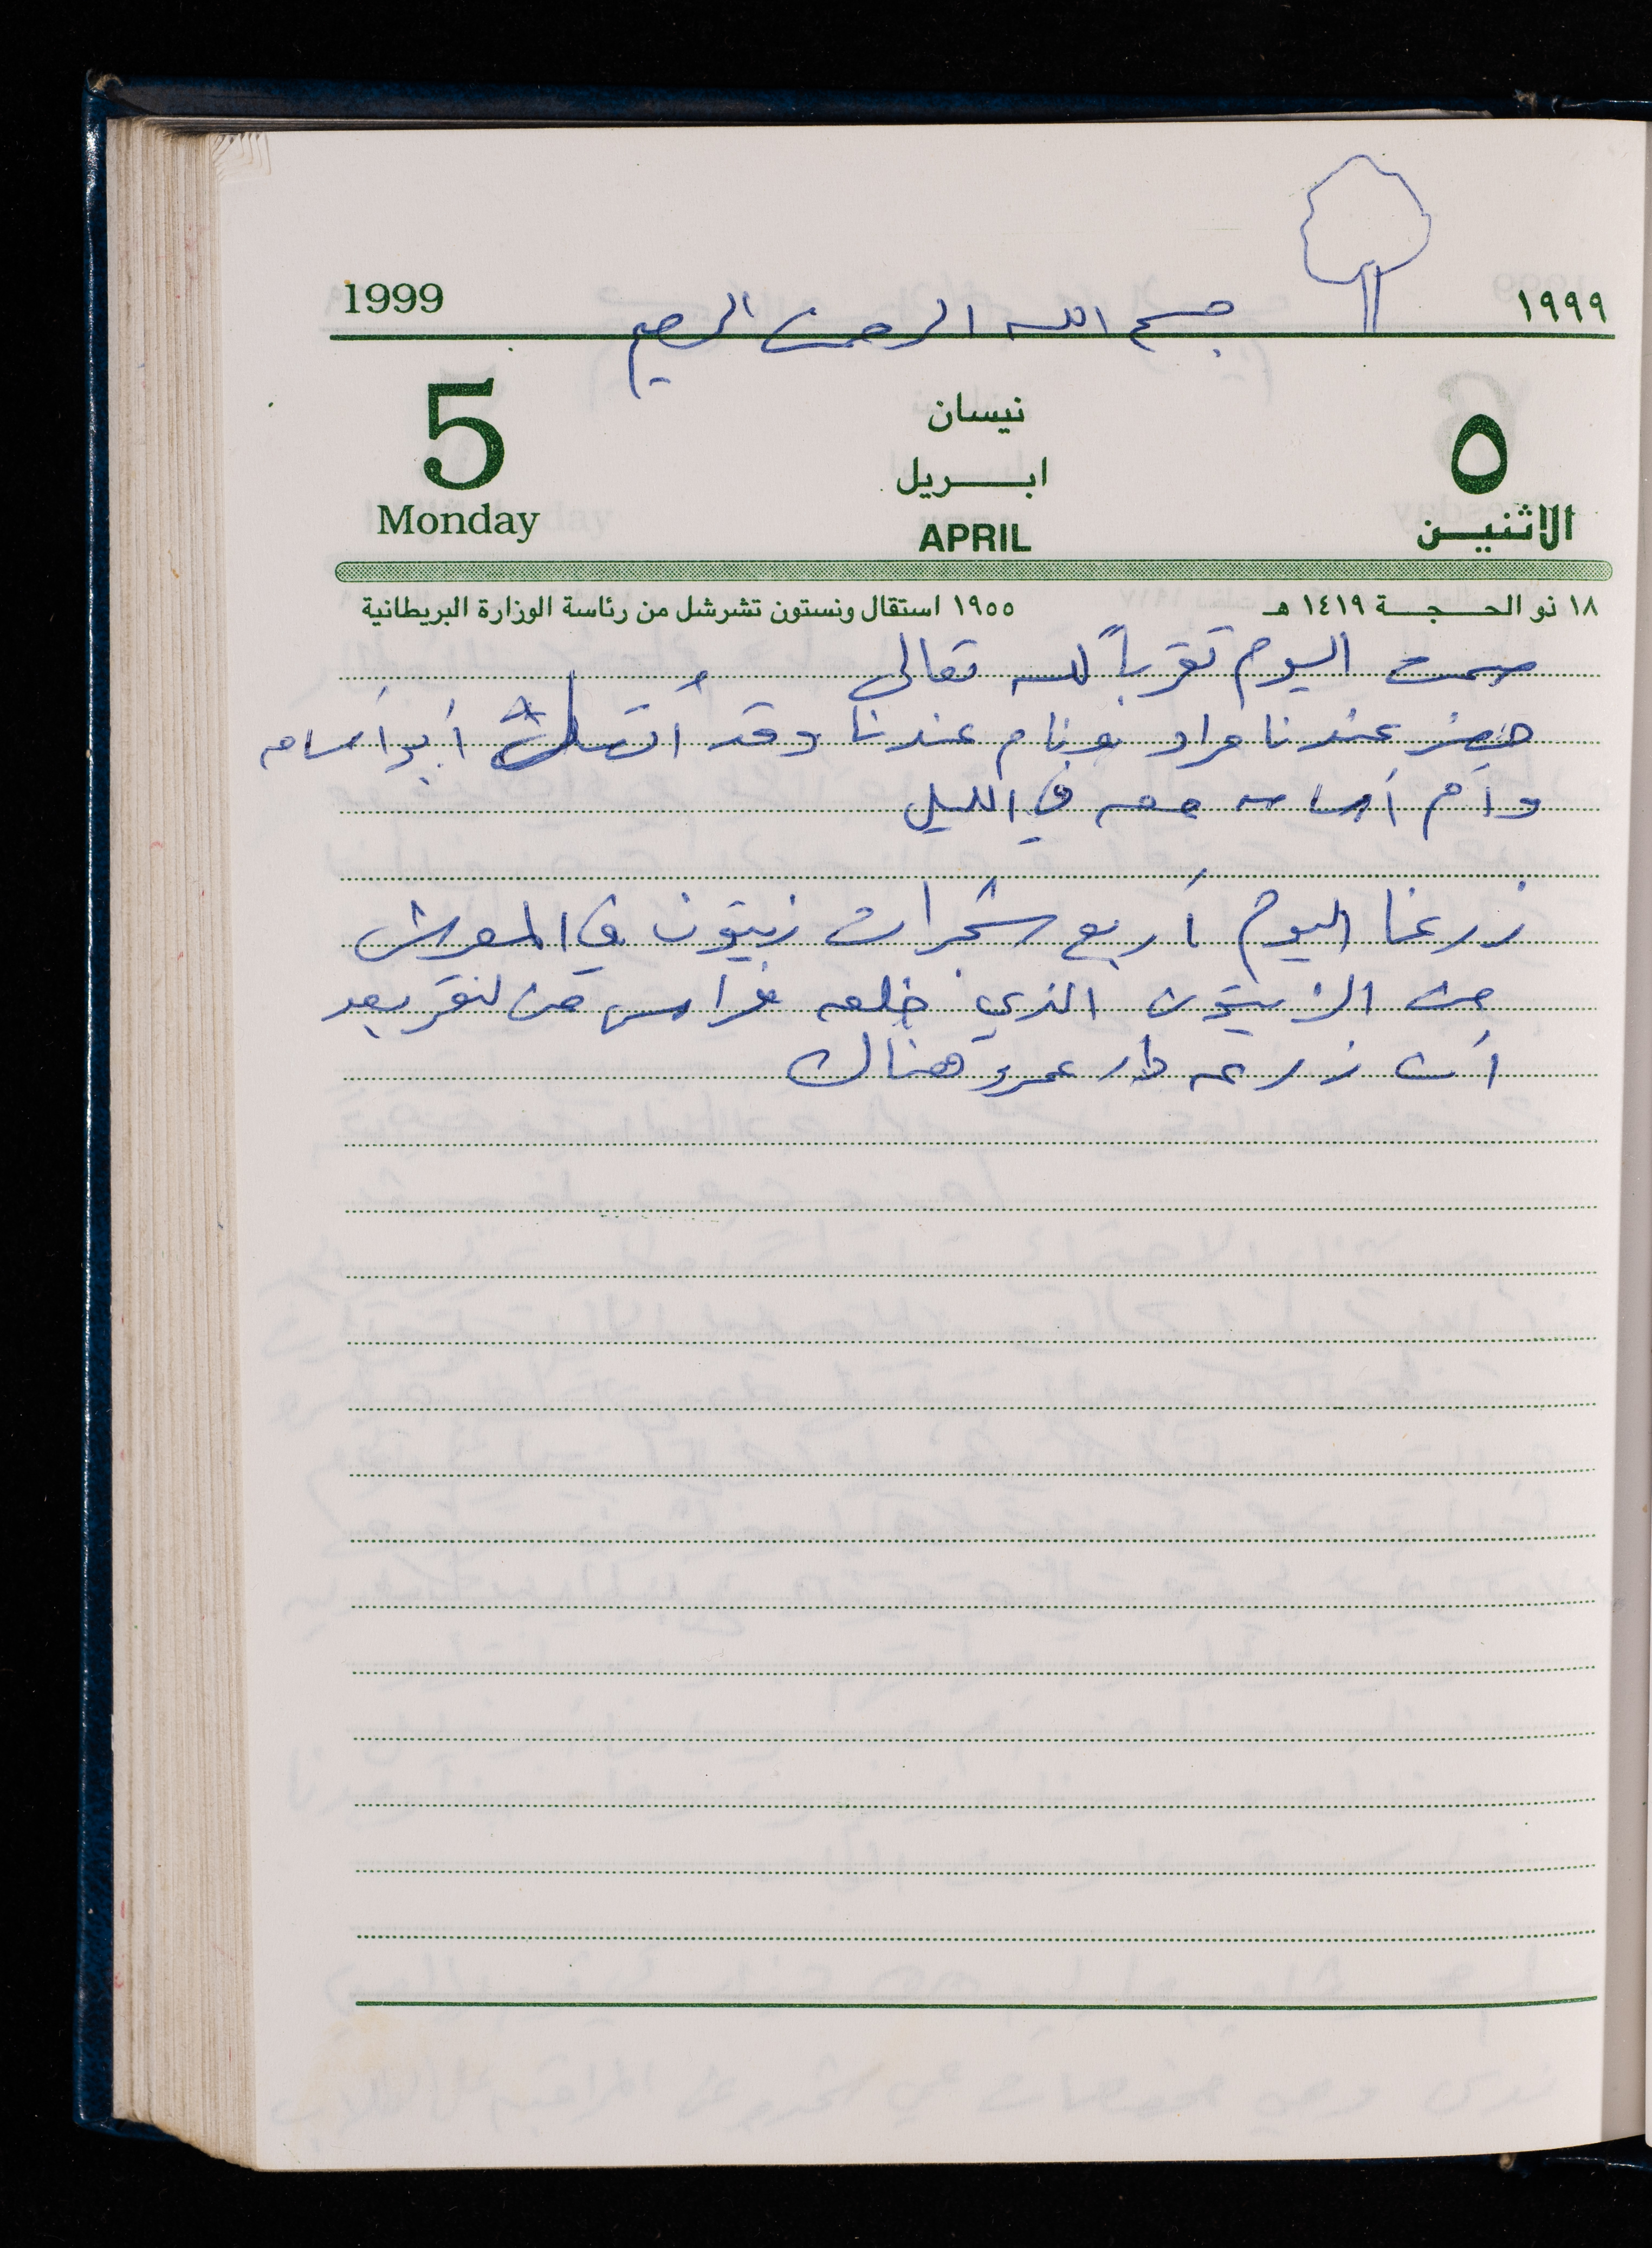 1999
١٩٩٩
بسم الله الرحمن الرحيم
5
نيسان
٥
ابـــريل
Monday
APRIL
الاثنيـن
١٨ ذو الحـجـة ١٤١٩ هـ
١٩٥٥ استقال ونستون تشرشل من رئاسة الوزارة البريطانية
صمت اليوم تقرباً لله تعالى
حضر عندنا مراد ونام عندنا وقد أتصلت أبو أسامه
وأم أسامه معه في الليل
زرعنا اليوم أربع شجرات زيتون في المعرش
من الزيتون الذي خلعه فراس من لنقر بعد
أن زرعه دار عمرو هناك